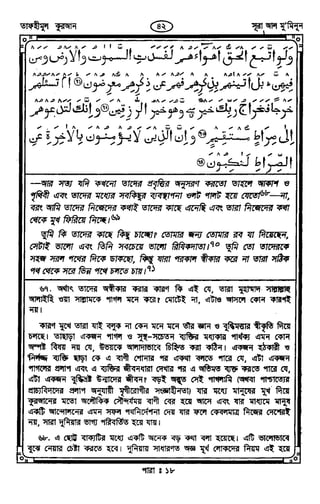 তাফহীমুল কুরআন
৪২
সূরা আল মু'মিনুন
وَلَوِ اتَّبَعَ الْحَقُّ اَهْوَاءَهُمْ لَفَسَدَتِ السَّمٰوٰتُ وَالْاَرْضُ وَمَنْ
فِيْهِنَّ ؕ بَلْ اَتَيْنٰهُمْ بِذِكْرِهِمْ فَهُمْ عَنْ ذِكْرِهِمْ مُّعْرِضُوْنَ ۞ اَمْ تَسْئَلُهُمْ
خَرْجًا فَخَرَاجُ رَبِّكَ خَيْرٌ ۖ وَّهُوَ خَيْرُ الرّٰزِقِيْنَ ۞ وَاِنَّكَ لَتَدْعُوْهُمْ
اِلٰى صِرَاطٍ مُّسْتَقِيْمٍ ۞ وَاِنَّ الَّذِيْنَ لَا يُؤْمِنُوْنَ بِالْاٰخِرَةِ عَنِ
الصِّرَاطِ لَنٰكِبُوْنَ ۞
—আর সত্য যদি কখনো তাদের প্রবৃত্তির অনুসরণ করতো তাহলে আকাশ ও
পৃথিবী এবং তাদের মধ্যের সবকিছুর ব্যবস্থাপনা ওলট পালট হয়ে যেতো৬৮—না,
বরং আমি তাদের নিজেদের কথাই তাদের কাছে এনেছি এবং তারা নিজেদের কথা
থেকে মুখ ফিরিয়ে নিচ্ছে।৬৯
তুমি কি তাদের কাছে কিছু চাচ্ছো? তোমার জন্য তোমার রব যা দিয়েছেন,
সেটাই ভালো এবং তিনি সবচেয়ে ভালো রিযিকদাতা।৭০ তুমি তো তাদেরকে
সহজ সরল পথের দিকে ডাকছো, কিন্তু যারা পরকাল স্বীকার করে না তারা সঠিক
পথ থেকে সরে ভিন্ন পথে চলতে চায়।৭১
৬৭. অর্থাৎ তাদের অস্বীকার করার কারণ কি এই যে, তারা মুহাম্মাদ সাল্লাল্লাহু
আলাইহি ওয়া সাল্লামকে পাগল মনে করে? মোটেই না, এটাও আসলে কোন কারণই
নয়।
কারণ মুখে তারা যাই বলুক না কেন মনে মনে তাঁর জ্ঞান ও বুদ্ধিমত্তার স্বীকৃতি দিয়ে
চলছে। তাছাড়া একজন পাগল ও সুস্থ-সচেতন ব্যক্তির মধ্যকার পার্থক্য এমন কোন
অস্পষ্ট বিষয় নয় যে, উভয়কে আলাদাভাবে চিহ্নিত করা কঠিন। একজন হঠকারী ও
নির্লজ্জ ব্যক্তি ছাড়া কে এ বাণী শোনার পর একথা বলতে পারে যে, এটা একজন
পাগলের প্রলাপ এবং এ ব্যক্তির জীবনধারা দেখার পর এ অভিমত ব্যক্ত করতে পারে যে,
এটা একজন বুদ্ধিভ্রষ্ট উন্মাদের জীবন? বড়ই অদ্ভুত সেই পাগলামি (অথবা পাশ্চাত্যের
প্রাচ্যবিদদের প্রলাপ অনুযায়ী মৃগীরোগীর সংজ্ঞাহীনতা) যার মধ্যে মানুষের মুখ দিয়ে
কুরআনের মতো অলৌকিক সৌন্দর্যময় বাণী বের হয়ে আসে এবং যার মাধ্যমে মানুষ
একটি আন্দোলনের এমন সফল পথনির্দেশনা দেয় যার ফলে কেবলমাত্র নিজের দেশেরই
নয়, সারা দুনিয়ার ভাগ্য পরিবর্তিত হয়ে যায়।
৬৮. এ ছোট্ট বাক্যটির মধ্যে একটি অনেক বড় কথা বলা হয়েছে। এটি ভালোভাবে
বুঝে নেয়ার চেষ্টা করতে হবে। দুনিয়ায় সাধারণত অজ্ঞ মূর্খ লোকদের নিয়ম এই হয়ে
পারা : ১৮